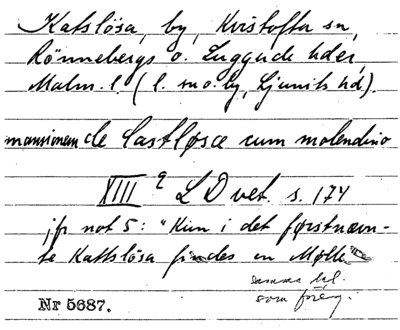 Katslösa, by, Kristofta sn,
Rönnebergs o. Luggude hder,
Malm. l. (l. sn o. by, Ljunits hd).
mansionem de Castløsæ cum molendino
XIII 2 LD vet. s. 174
jfr not 5: "Kun i det førstnævn-
te Kattslösa findes en Mølle"
samma bel.
som föreg.
Nr 5687.